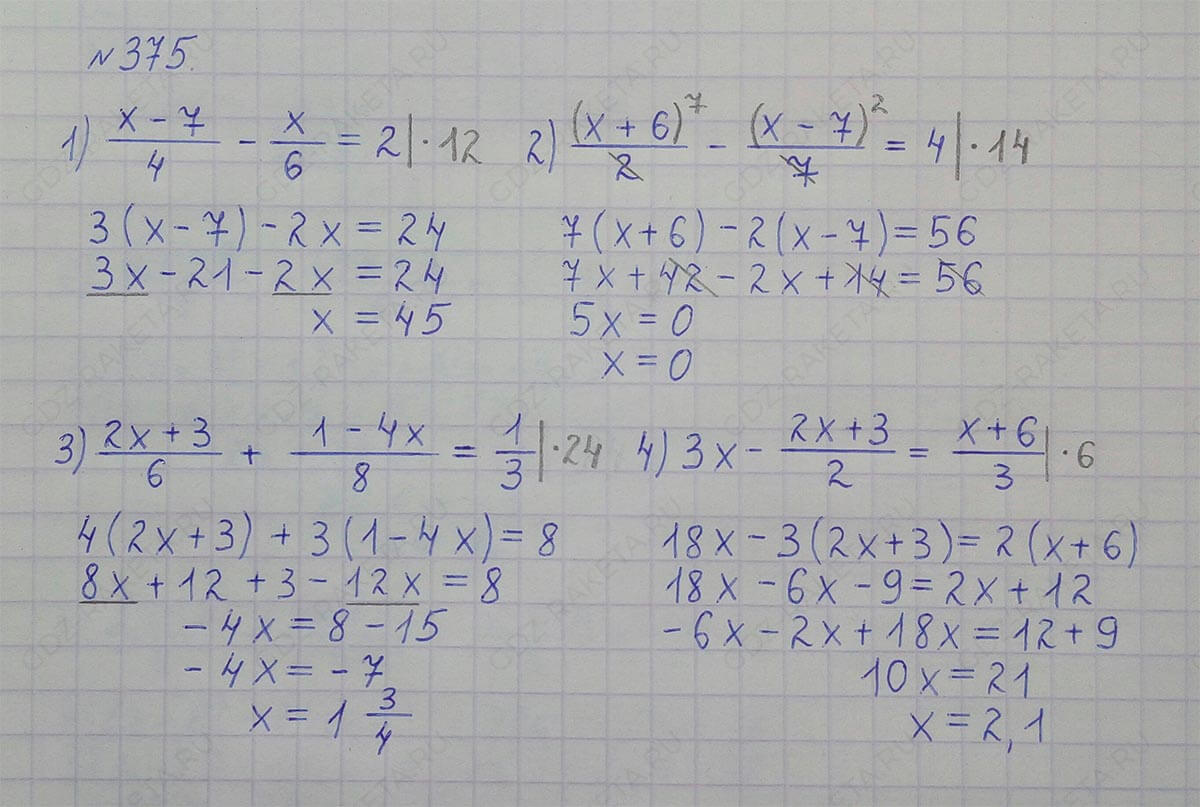 № 375.
1) (x - 7)/4 - x/6 = 2 | · 12
3(x - 7) - 2x = 24
3x - 21 - 2x = 24
x = 45
2) (x + 6)⁷/2 - (x - 7)²/7 = 4 | · 14
7(x + 6) - 2(x - 7) = 56
7x + 42 - 2x + 14 = 56
5x = 0
x = 0
3) (2x + 3)/6 + (1 - 4x)/8 = 1/3 | · 24
4(2x + 3) + 3(1 - 4x) = 8
8x + 12 + 3 - 12x = 8
- 4x = 8 - 15
- 4x = - 7
x = 1 3/4
4) 3x - (2x + 3)/2 = (x + 6)/3 | · 6
18x - 3(2x + 3) = 2(x + 6)
18x - 6x - 9 = 2x + 12
- 6x - 2x + 18x = 12 + 9
10x = 21
x = 2,1
GDZ-RAKETA.RU